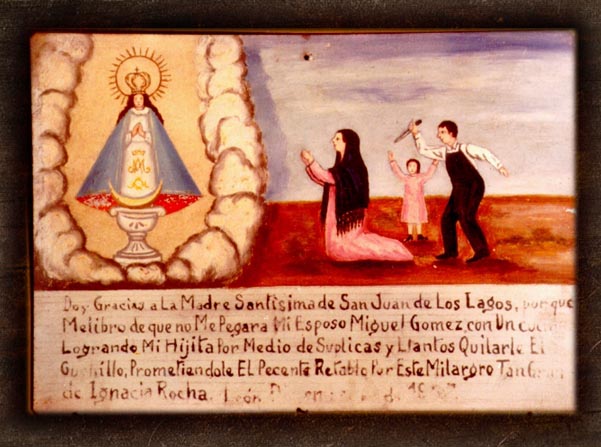 Doy Gracias a La Madre Santisima de San Juan de Los Lagos, porque
Me libro de que no Me Pegara Mi Esposo Miguel Gomez, con Un
Logrando Mi Hijita Por Medio de Suplicas y Llantos Quitarle El
Prometiendole El Pecente Retablo Por Este Milargro Tan
de Ignacia Rocha. León